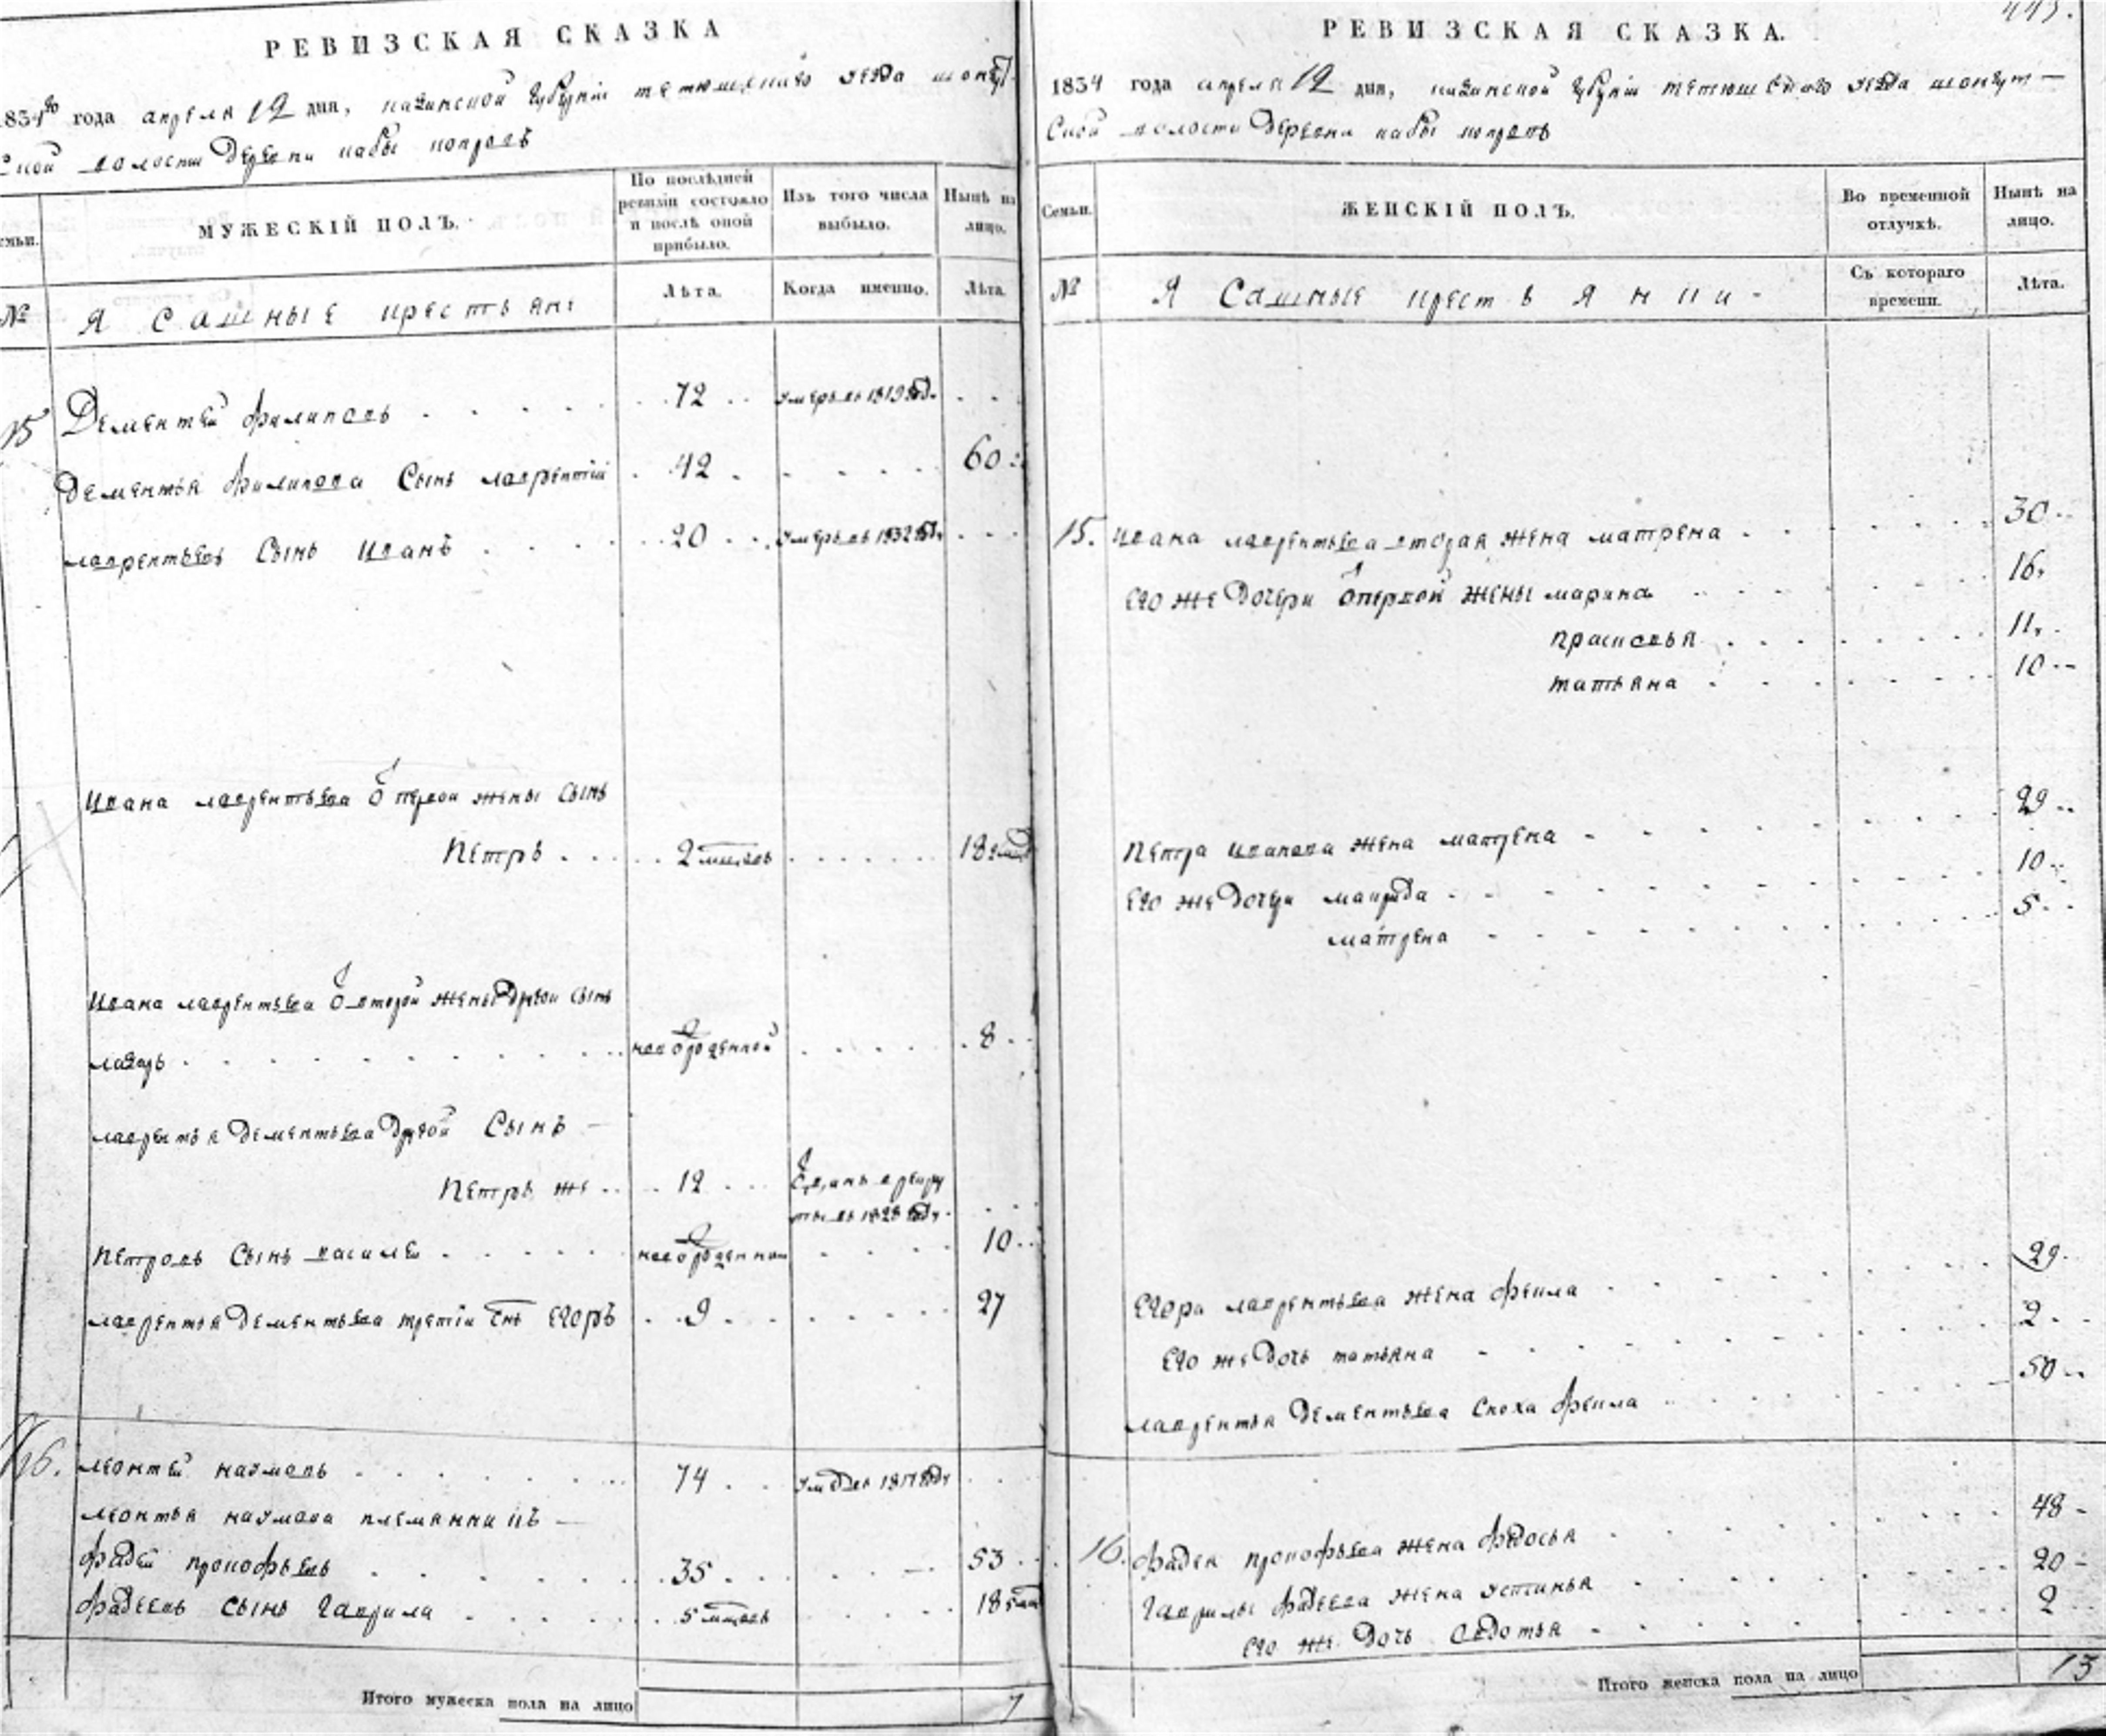 РЕВИЗСКАЯ СКАЗКА
1834го года апреля 12 дня, казанской губернiи тетюшскаго уезда шонгут
ской волости деревни кабы копревъ
Семьи.
МУЖЕСКIЙ ПОЛЪ.
По послѣдней ревизiи состояло и послѣ оной прибыло.
Изъ того числа выбыло.
Нынѣ на лицо.
№
Ясашные крестьяне
Лѣта.
Когда именно.
Лѣта.
15 Дементей филиповъ 72 умеръ въ 1819 году
Дементья филипова Сынъ лаврентiй 42 60
лаврентьевъ Сынъ Иванъ 20 умеръ въ 1832 году
Ивана лаврентьева от первой жены Сынъ
Петръ 2 мцовъ 18
Ивана лаврентьева от второй жены другой Сынъ
лазарь новорожденной 8
лаврентья дементьева другой Сынъ
Петръ же 12 отданъ в рекруты въ 1828 году
Петровъ Сынъ василей новорожденной 10
лаврентья дементьева третiй Снъ Егоръ 9 27
16. леонтей наумовъ 74 1817 году
леонтья наумова племянникъ
фадей прокофьевъ 35 53
фадеевъ сынъ гаврила 5 мцовъ 18
Итого мужеска пола на лицо 7
РЕВИЗСКАЯ СКАЗКА.
1834 года апреля 12 дня, казанской губернiи тетюшскаго уезда шонгут
ской волости деревни кабы копревъ
Семьи.
ЖЕНСКIЙ ПОЛЪ.
Во временной отлучкѣ.
Нынѣ на лицо.
№
Ясашные крестьянки
Съ котораго времени.
Лѣта.
15. Ивана лаврентьева вторая жена матрена 30
Его же дочери от первой жены марина 16
прасковья 11
татьяна 10
Петра иванова жена матрена 29
Его же дочери 10
матрена 5
Егора лаврентьева жена фекла 29
Его же дочь татьяна 2
лаврентья дементьева сноха фекла 50
16. фадея прокофьева жена федосья 48
гаврилы фадеева жена устинья 20
его же дочь 2
Итого женска пола на лицо 13